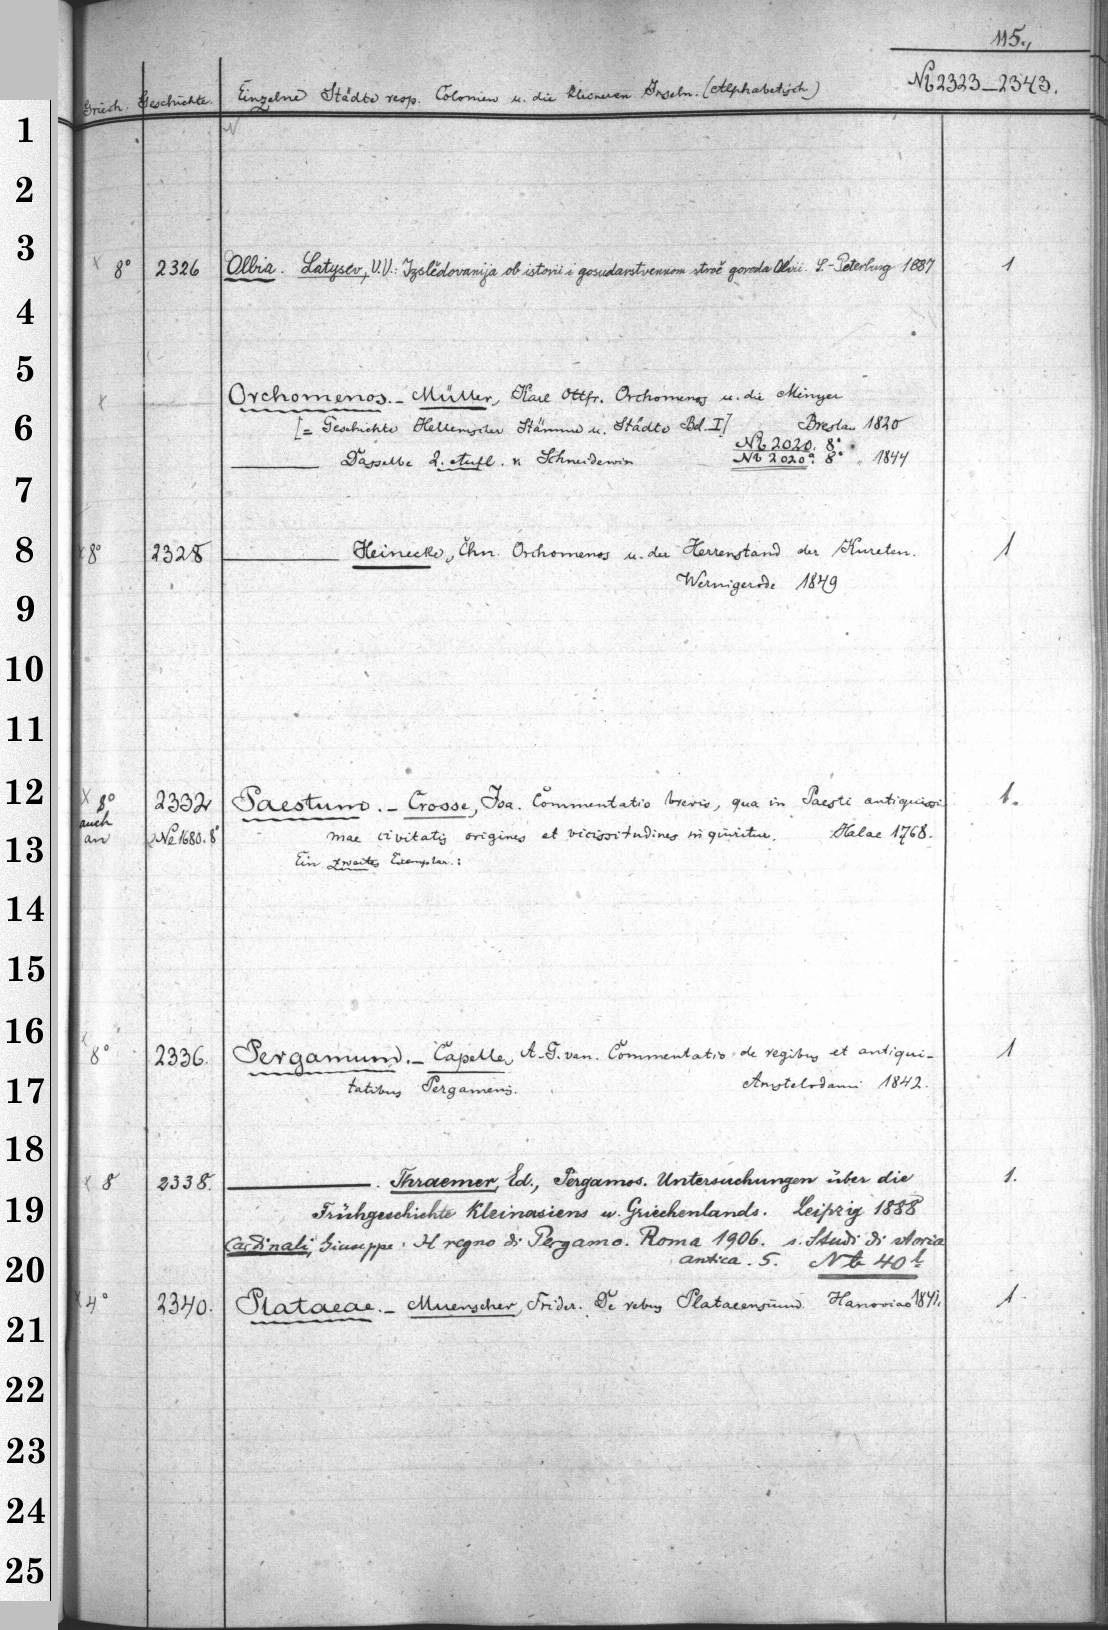 115.,
Griech. Geschichte. Einzelne Städte resp. Colonien u. die kleineren Inseln. (Alphabetisch) № 2323–2343.
1
2
3
x 8° 2326 Olbia. Latyšev, V.V.: Izslědovanija ob istorii i gosudarstvennom stroě goroda Olvii. S.-Peterburg 1887 1
4
5
x Orchomenos. – Müller, Karl Ottfr. Orchomenos u. die Minyer
6 [= Geschichte Hellenischer Stämme u. Städte Bd. I] Breslau 1820
№ 2020. 8°
Dasselbe 2. Aufl. v. Schneidewin № 2020a. 8° 1844
7
8 x 8° 2328 Heinecke, Chn. Orchomenos u. der Herrenstand der Kureten. 1
9 Wernigerode 1849
10
11
12 x 8° 2332 Paestum. – Crosse, Isa. Commentatio brevis, qua in Paesti antiquissi- 1.
auch an № 1680. 8° mae civitatis origines et vicissitudines inquiritur. Halae 1768.
13 Ein zweites Exemplar.:
14
15
16 x 8° 2336. Pergamum. – Capelle, A. G. van. Commentatio de regibus et antiqui- 1
17 tatibus Pergamenis. Amstelodami 1842.
18
x 8 2338. Thraemer, Ed., Pergamos. Untersuchungen über die 1.
19 Frühgeschichte Kleinasiens u. Griechenlands. Leipzig 1888
Cardinali, Giuseppe: Il regno di Pergamo. Roma 1906. s. Studi di storia
20 antica. 5. № 40 b
x 4° 2340. Plataeae. – Muenscher, Frider. De rebus Plataeensium. Hanoviae 1841. 1
21
22
23
24
25